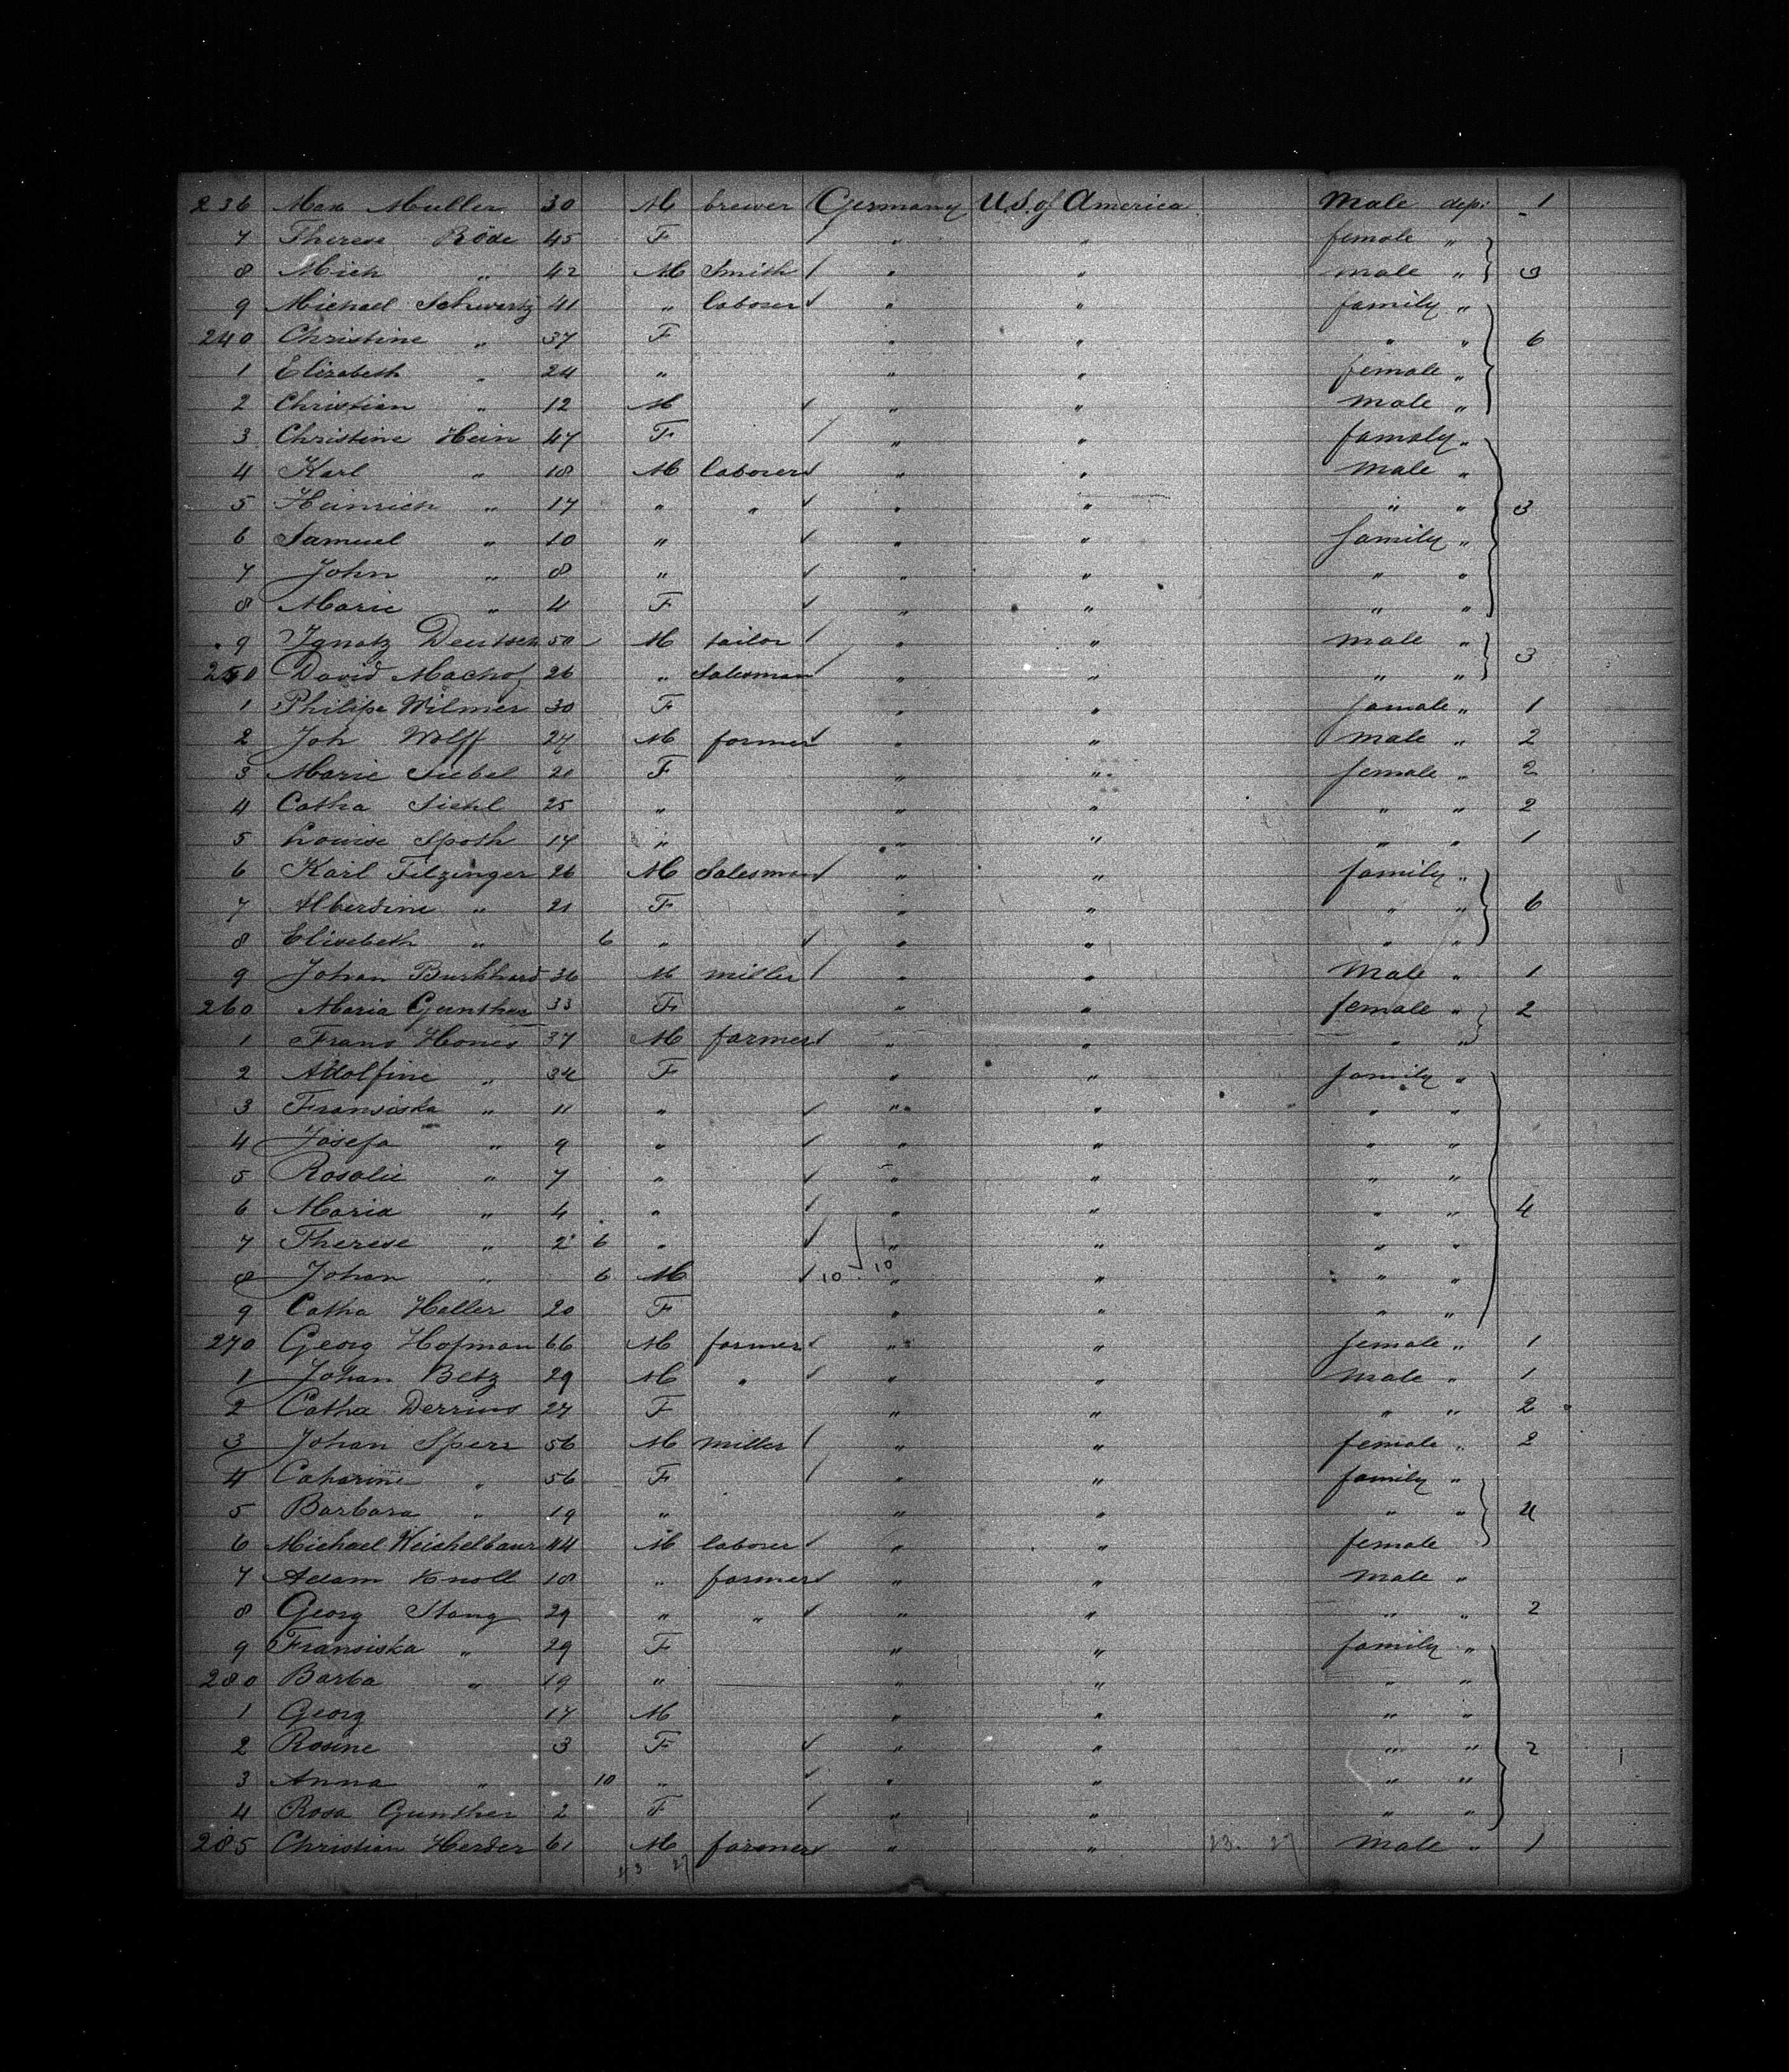 236 Max Muller 30 M brewer Germany U.S. of America Male dep: 1
7 Therese Röde 45 F " " female "
8 Mich " 42 M Smith " " male " 3
9 Michael Schwartz 41 " laborer " " family "
240 Christine " 37 F " " " " 6
1 Elizabeth " 24 " " " female "
2 Christian " 12 M " " male "
3 Christine Hein 47 F " " famaly "
4 Karl " 18 M laborer " " male "
5 Heinrich " 17 " " " " " " 3
6 Samuel " 10 " " " family "
7 John " 8 " " " " "
8 Marie " 4 F " " " "
9 Ignatz Deutsch 50 M tailor " " male "
250 David 26 " Salesman " " " " 3
1 Philipe Wilmer 30 F " " female " 1
2 Joh Wolff 27 M farmer " " male " 2
3 Marie Siebel 20 F " " female " 2
4 Catha Siehl 25 " " " " " 2
5 Louise Spoth 17 " " " " " 1
6 Karl Filzinger 26 M Salesman " " family "
7 Alberdine " 21 F " " " " 6
8 Elisebeth " 6 " " " " "
9 Johan Burkhard 36 M miller " " Male " 1
260 Maria Gunther 33 F " " female " 2
1 Frans Hones 37 M farmer " " " "
2 Adolfine " 34 F " " family "
3 Fransiska " 11 " " " " "
4 Josefa " 9 " " " " "
5 Rosalie " 7 " " " " "
6 Maria " 4 " " " " " 4
7 Therese " 2 6 " " " " "
8 Johan " 6 M 10 10 " " " "
9 Catha Haller 20 F " " " "
270 Georg Hofman 66 M farmer " " female " 1
1 Johan Betz 29 M " " " male " 1
2 Catha Derrius 27 F " " " " 2
3 Johan Sperr 56 M miller " " female " 2
4 Catharine " 56 F " " family "
5 Barbara " 19 " " " " " 4
6 Michael Weichelbaur 44 M laborer " " female
7 Adam Knoll 18 " farmer " " male "
8 Georg Stang 29 " " " " " " 2
9 Fransiska " 29 F " " family "
280 Barba " 19 " " " " "
1 Georg 17 M " " " "
2 Rosine 3 F " " " " 2
3 Anna " 10 " " " " "
4 Rosa Gunther 2 F " " " "
285 Christian Herder 61 M farmer " " 23. 27 male " 1
23 27